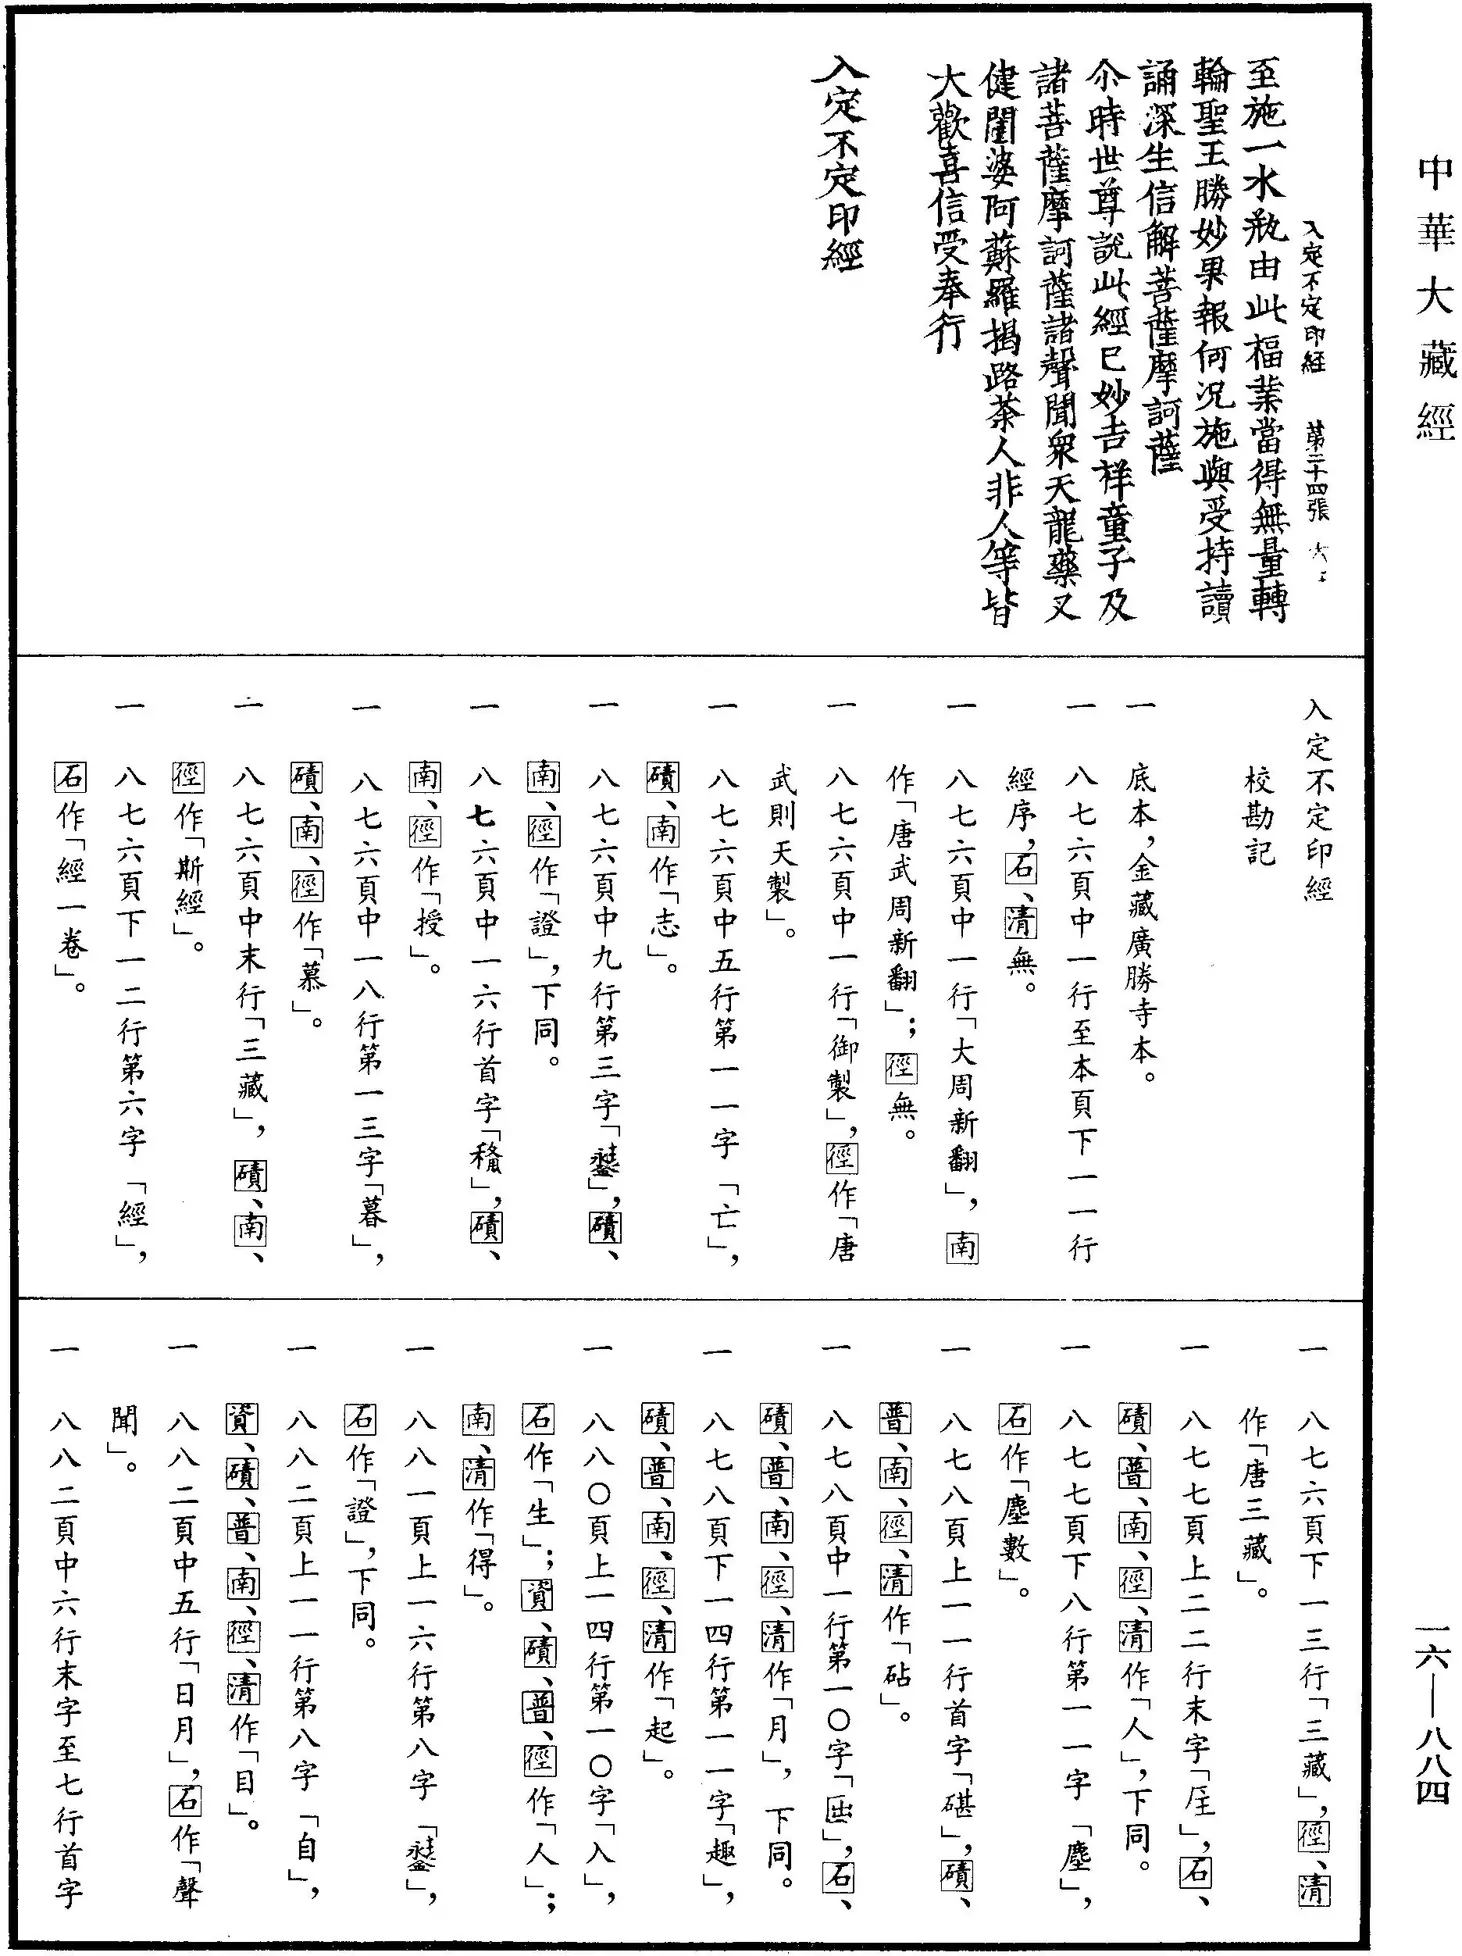 中華大藏經
入定不定印經　第二十四張　大
至施一水瓶由此福業當得無量轉
輪聖王勝妙果報何況施與受持讀
誦深生信解菩薩摩訶薩
尒時世尊說此經已妙吉祥童子及
諸菩薩摩訶薩諸聲聞衆天龍藥叉
健闥婆阿蘇羅揭路茶人非人等皆
大歡喜信受奉行
入定不定印經
入定不定印經
校勘記
一　底本，金藏廣勝寺本。
一　八七六頁中一行至本頁下一一行
經序，石、清無。
一　八七六頁中一行「大周新翻」，南
作「唐武周新翻」；徑無。
一　八七六頁中一行「御製」，徑作「唐
武則天製」。
一　八七六頁中五行第一一字「亡」，
磧、南作「志」。
一　八七六頁中九行第三字「𨭻」，磧、
南、徑作「證」，下同。
一　八七六頁中一六行首字「稵」，磧、
南、徑作「授」。
一　八七六頁中一八行第一三字「暮」，
磧、南、徑作「慕」。
一　八七六頁中末行「三藏」，磧、南、
徑作「斯經」。
一　八七六頁下一二行第六字「經」，
石作「經一卷」。
一　八七六頁下一三行「三藏」，徑、清
作「唐三藏」。
一　八七七頁上二二行末字「𤯔」，石、
磧、普、南、徑、清作「人」，下同。
一　八七七頁下八行第一一字「塵」，
石作「塵數」。
一　八七八頁上一一行首字「碪」，磧、
普、南、徑、清作「砧」。
一　八七八頁中一行第一〇字「囝」，石、
磧、普、南、徑、清作「月」，下同。
一　八七八頁下一四行第一一字「趣」，
磧、普、南、徑、清作「起」。
一　八八〇頁上一四行第一〇字「入」，
石作「生」；資、磧、普、徑作「人」；
南、清作「得」。
一　八八一頁上一六行第八字「𨭻」，
石作「證」，下同。
一　八八二頁上一一行第八字「自」，
資、磧、普、南、徑、清作「目」。
一　八八二頁中五行「日月」，石作「聲
聞」。
一　八八二頁中六行末字至七行首字
一六—八八四